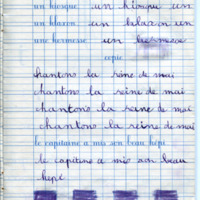 un kiosque un kiosque un
un blason un blason un
une kermesse un kermesse
copie
chantons la reine de mai
chantons la reine de mai
chantons la reine de mai
chantons la reine de mai
le capitaine a mis son beau képi
le capitaine a mis son beau
képi